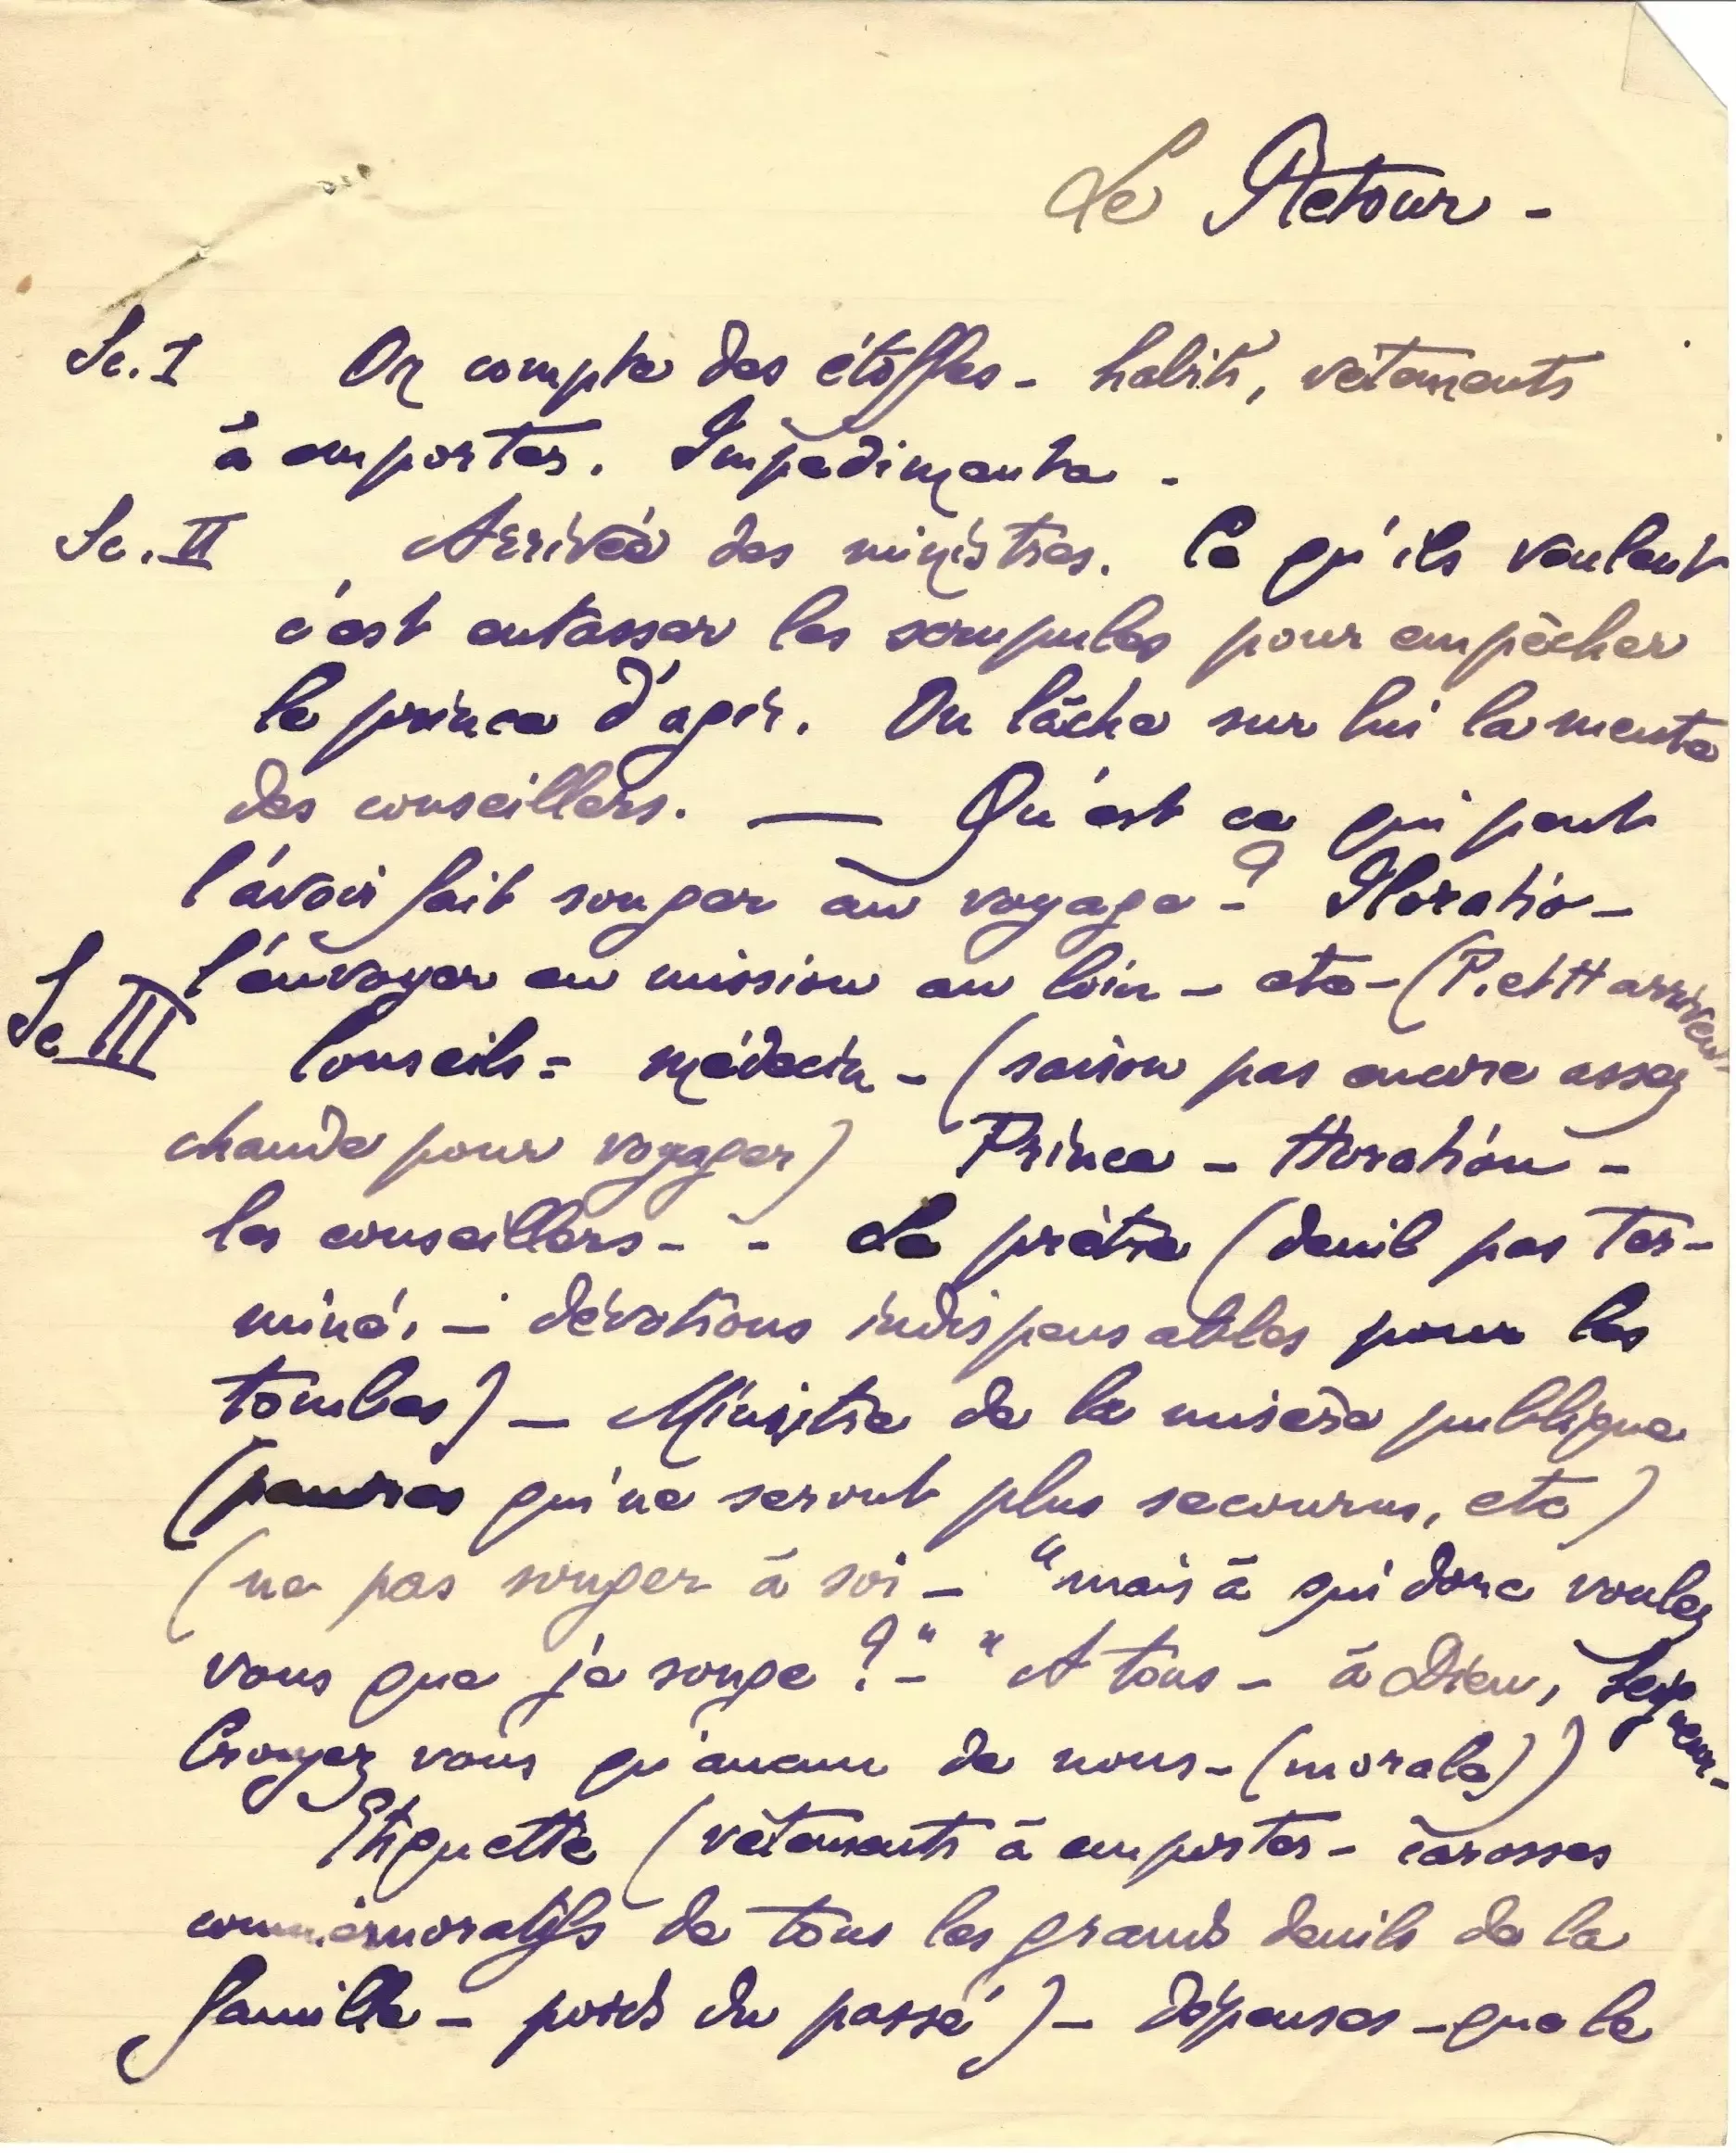 Le Retour -
Sc. I On compte des étoffes - habits, vêtements
à emporter. Impedimenta -
Sc. II Arrivée des ministres. Ce qu'ils veulent
c'est entasser les scrupules pour empêcher
le prince d'agir. On lâche sur lui la meute
des conseillers. — Qu'est ce qui peut
l'avoir fait songer au voyage - ? Horatio -
l'envoyer en mission au loin - etc - (P. et H arrivent
Sc III Conseils = médecin - (saison pas encore assez
chaude pour voyager) Prince - Horation -
les conseillers - - Le prêtre (deuil pas ter-
miné, - dévotions indispensables pour les
tombes) - Ministre de la misère publique
(pauvres qui ne seront plus secourus, etc)
(ne pas songer à soi - "mais à qui donc voulez
vous que je songe ? - " " A tous - à Dieu, Seigneur -
Croyez vous qu'aucun de nous - (morale))
Etiquette (vêtements à emporter - carosses
commémoratifs de tous les grands deuils de la
famille - poids du passé) - dépenses - que le